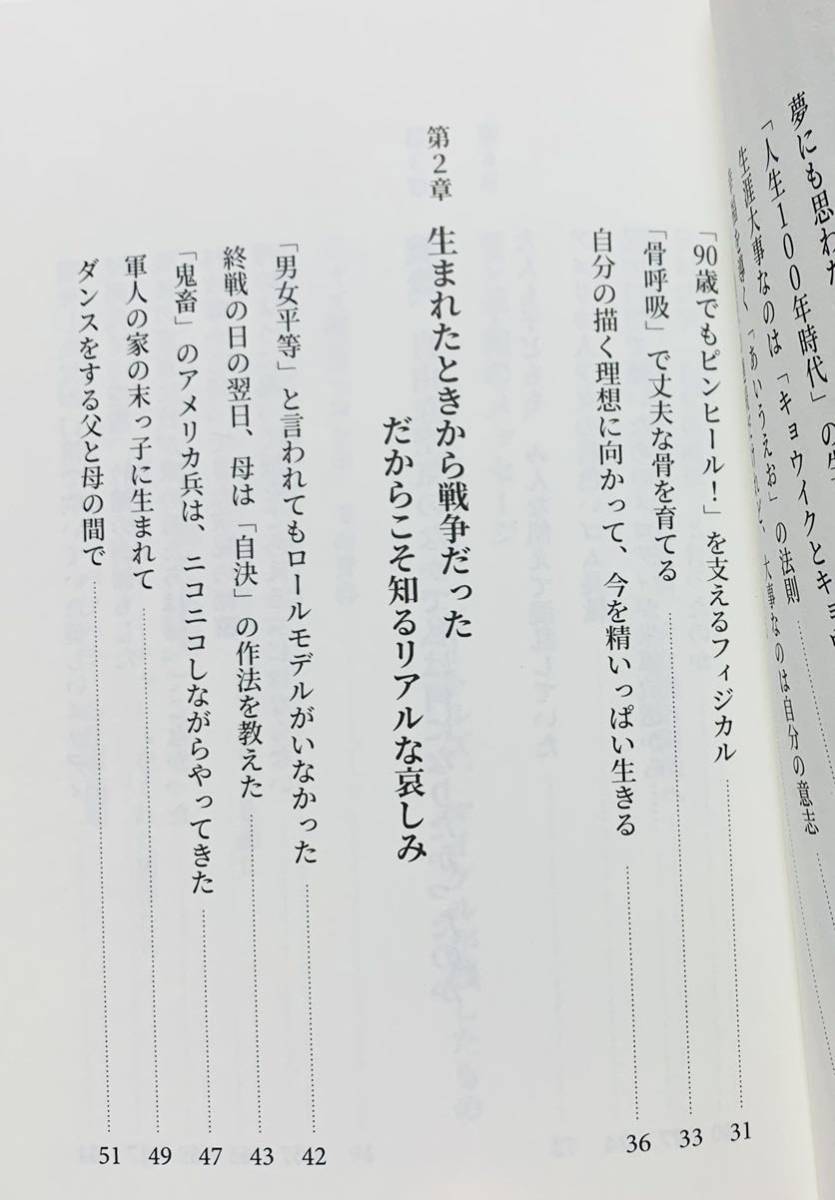 夢にも思わ
「人生100年時代」の
生涯大事なのは「キョウイクとキョウ
「あいうえお」の法則
大事なのは自分の意志
「90歳でもピンヒール!」を支えるフィジカル 31
「骨呼吸」で丈夫な骨を育てる 33
自分の描く理想に向かって、今を精いっぱい生きる 36
第2章 生まれたときから戦争だった
だからこそ知るリアルな哀しみ
「男女平等」と言われてもロールモデルがいなかった 42
終戦の日の翌日、母は「自決」の作法を教えた 43
「鬼畜」のアメリカ兵は、ニコニコしながらやってきた 47
軍人の家の末っ子に生まれて 49
ダンスをする父と母の間で 51